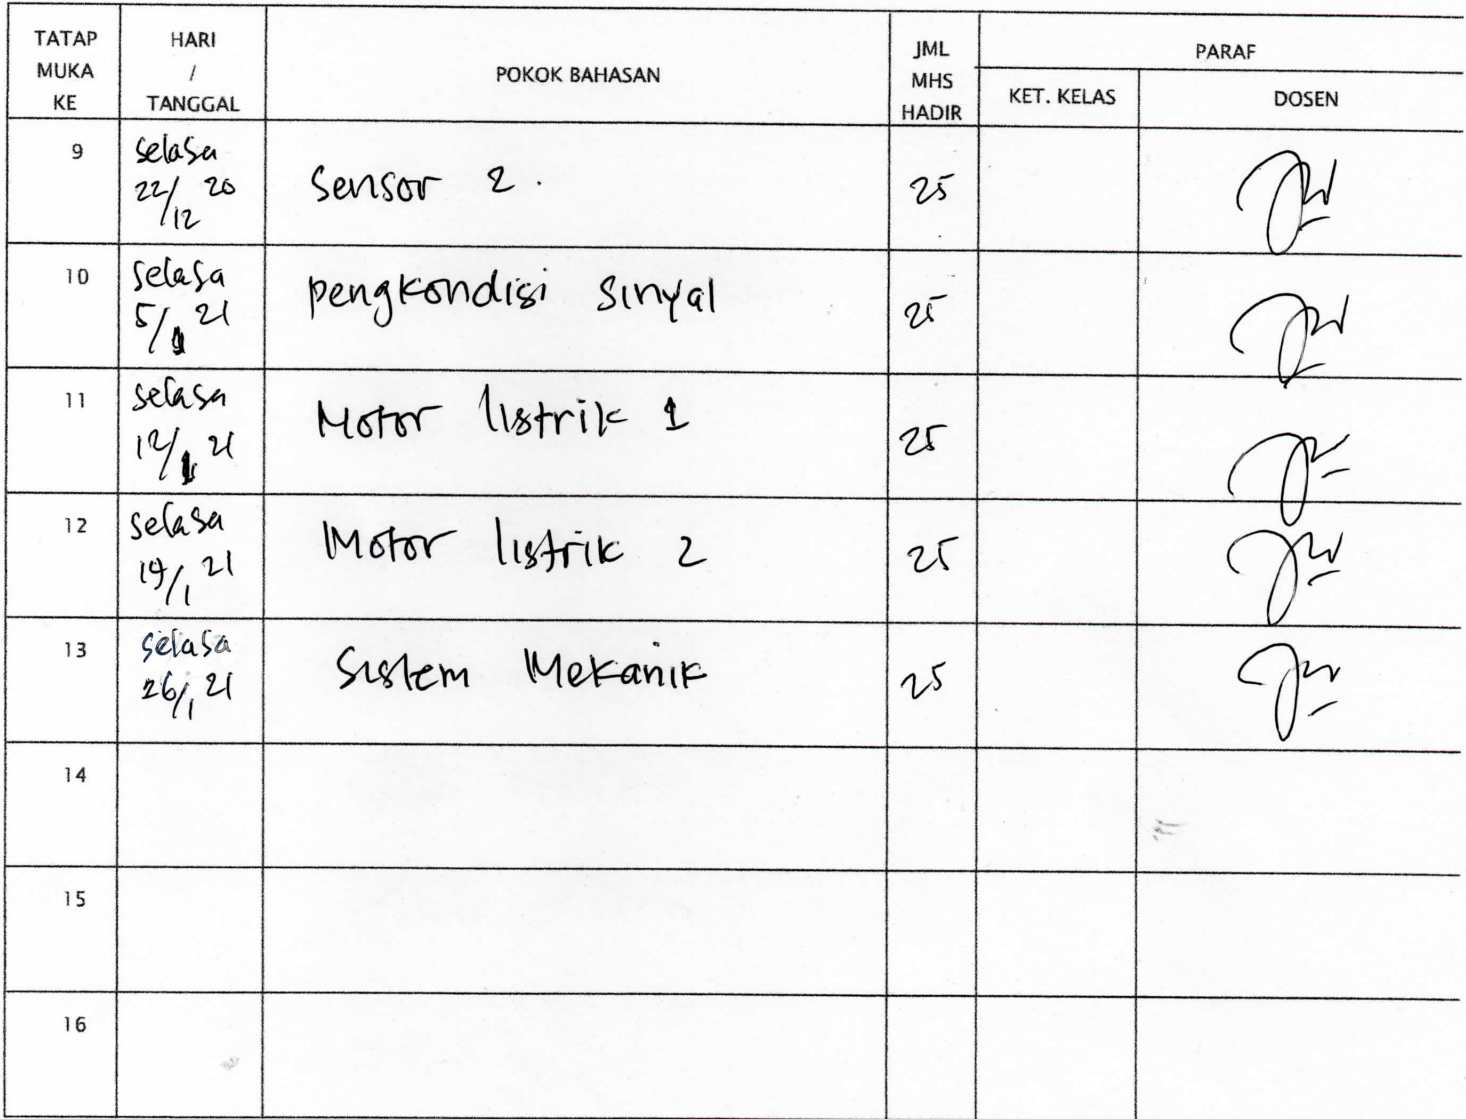 TATAP MUKA KE
HARI / TANGGAL
POKOK BAHASAN
JML MHS HADIR
PARAF
KET. KELAS
DOSEN
9
selasa
22/12 20
Sensor 2.
25
10
selasa
5/1 21
pengkondisi sinyal
25
11
selasa
12/1 21
Motor listrik 1
25
12
selasa
19/1 21
Motor listrik 2
25
13
selasa
26/1 21
Sistem Mekanik
25
14
15
16